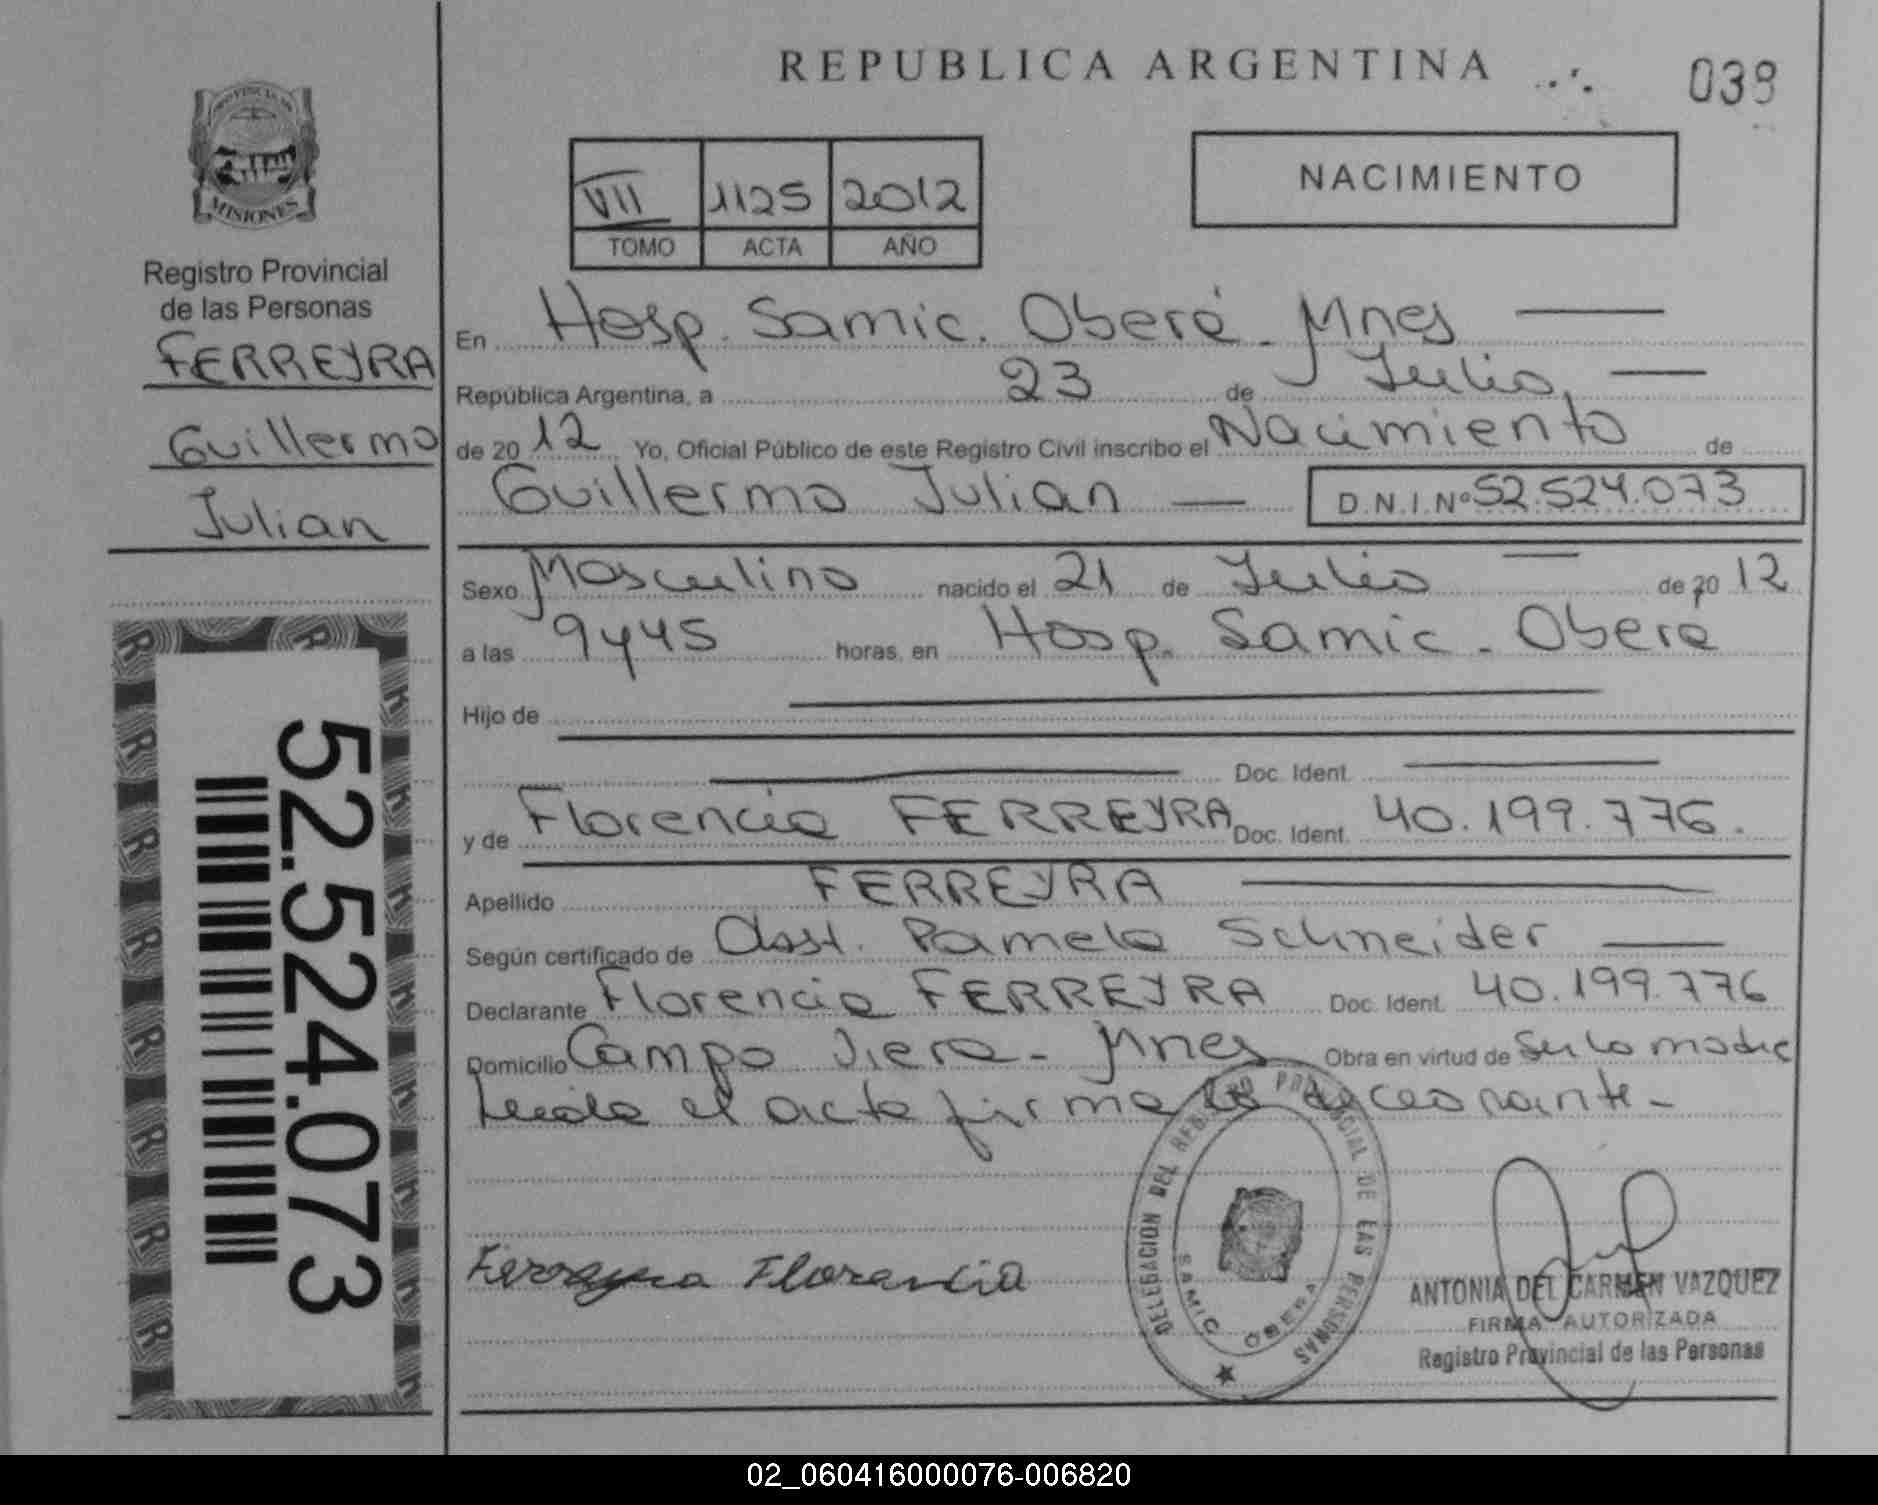 REPUBLICA ARGENTINA
039
PROVINCIA DE
MISIONES
Registro Provincial
de las Personas
FERREYRA
Guillermo
Julian
52.524.073
VII 1125 2012
TOMO ACTA AÑO
NACIMIENTO
En Hosp. Samic. Oberá. Mnes
República Argentina, a 23 de Julio
de 2012 Yo, Oficial Público de este Registro Civil inscribo el Nacimiento de
Guillermo Julian D.N.I.Nº 52.524.073
Sexo Masculino nacido el 21 de Julio de 2012
a las 9y45 horas, en Hosp. Samic. Oberá
Hijo de
Doc. Ident.
y de Florencia FERREYRA Doc. Ident. 40.199.776.
Apellido FERREYRA
Según certificado de Obst. Pamela Schneider
Declarante Florencia FERREYRA Doc. Ident. 40.199.776
Domicilio Campo Viera - Mnes Obra en virtud de Ser la madre
Leida el acta firma la
DELEGACION DEL REGISTRO PROVINCIAL DE LAS PERSONAS
SAMIC OBERA
Ferreyra Florencia
ANTONIA DEL CARMEN VAZQUEZ
FIRMA AUTORIZADA
Registro Provincial de las Personas
02_060416000076-006820